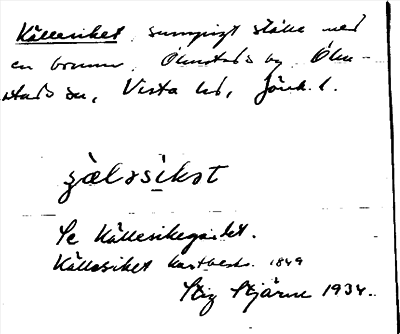 Källesiket, sumpigt ställe med
en brunn. Ölmstads by, Ölm-
stads sn, Vista hd, Jönk. l.
çälɘsìkɘt
Se Källesikegärdet.
Källesiket kartbeskr. 1849
Stig Stjärne 1934.